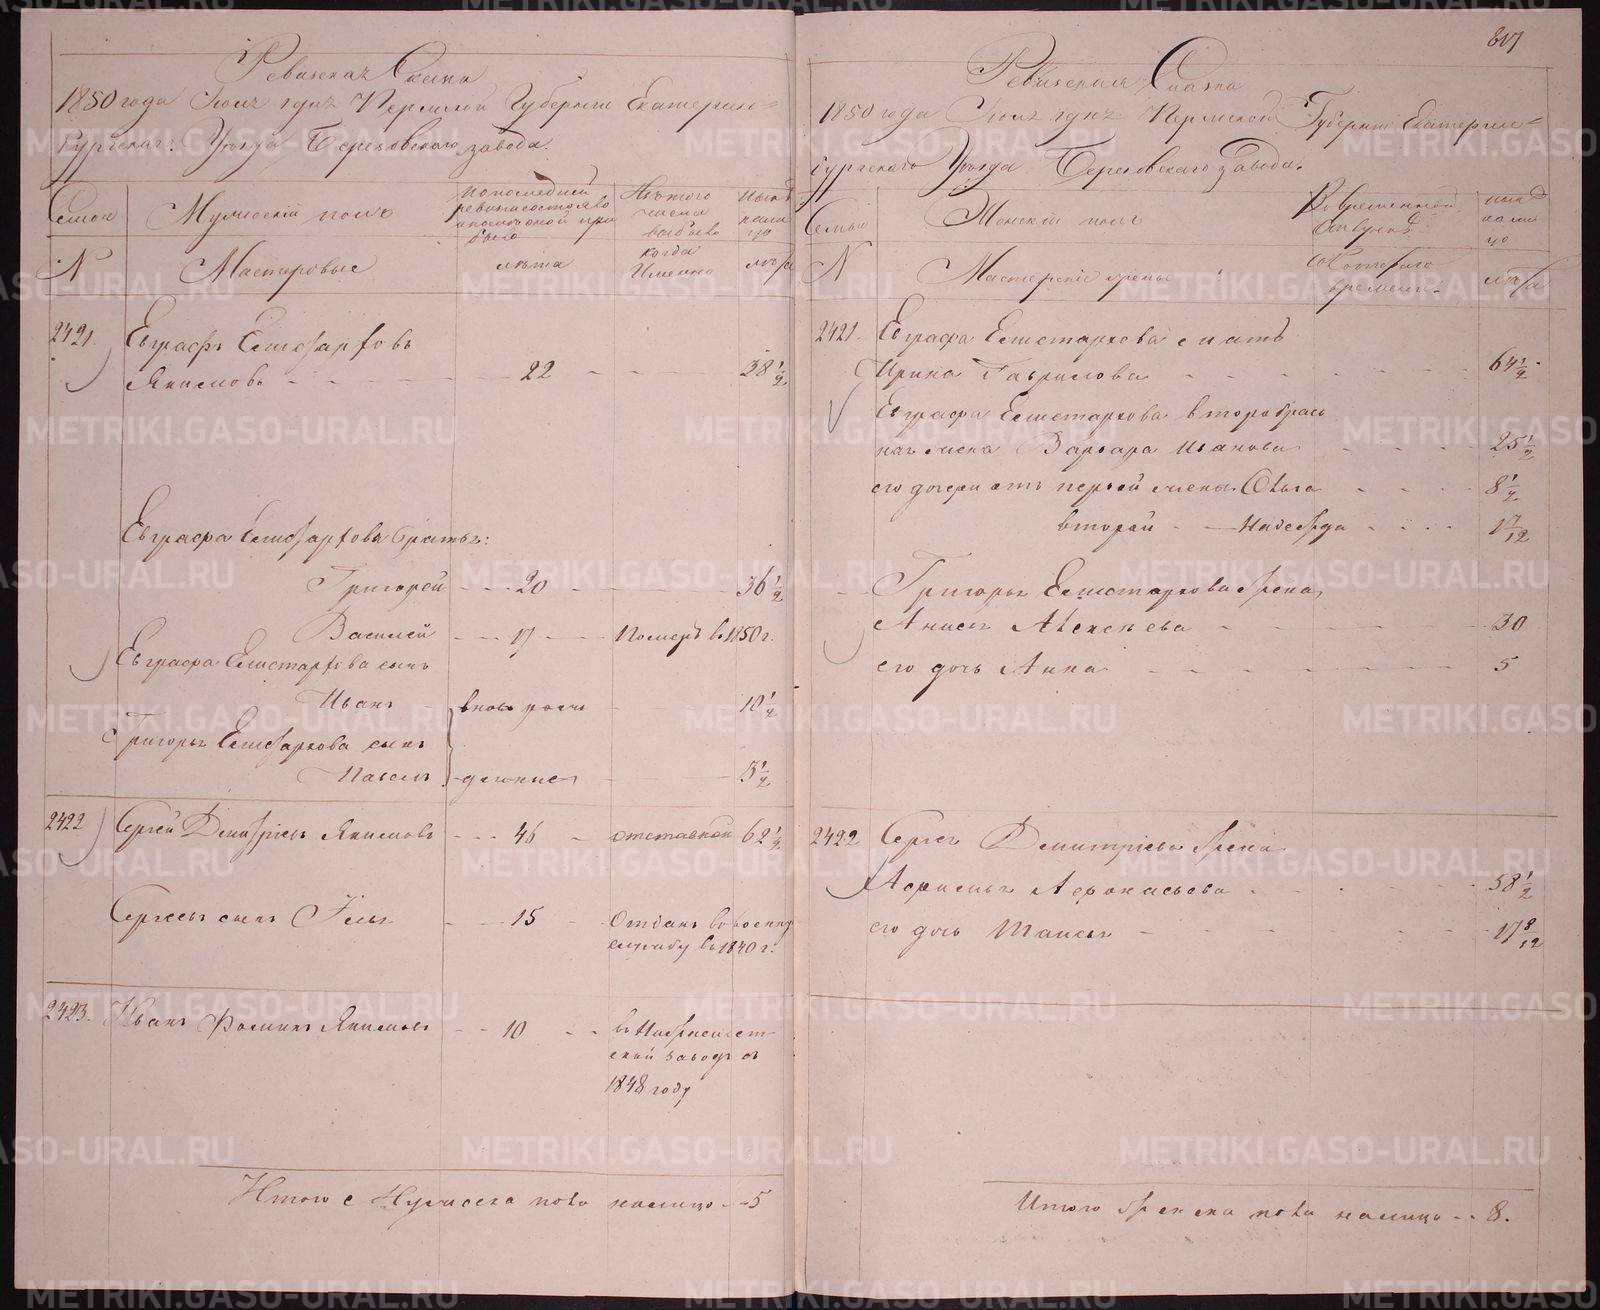 Ревизская Сказка
1850 года Июля дня Пермской Губернии Екатерин-
бургскаго Уезда Березовскаго завода.
Семьи
Мужескій полъ
По последней ревизіи состояло и после оной прибыло
Изъ того числа выбыло
Ныне налицо
N
Мастеровые
лета
когда Именно
лета
2421.
Евграфъ Елистарховъ
Якимовъ - - - 22 - - - 38 1/2
Евграфа Елистархова братья:
Григорей - - - 20 - - - 36 1/2
Василей - - - 17 - - - Померъ въ 1850 г.
Евграфа Елистархова сынъ
Иванъ вновь рож - - - 10 1/2
Григорья Елистархова сынъ
Павелъ - денные - - - 3 1/2
2422 Сергей Дмитріевъ Якимовъ - - - 46 - отставной 62 1/2
Сергеевъ сынъ Илья - - 15 - - Отданъ в военну
службу въ 1840 г.
2423. Иванъ Фоминъ Якимовъ - - 10 - - въ
скій заводъ съ
1848 году
Итого Мужеска пола налицо - - 5
817
Ревизская Сказка
1850 года Июля дня Пермской Губерніи Екатерин-
бургскаго Уезда Березовскаго завода.
Семьи
Женскій полъ
Во временной отлучке
ныне налицо
N
Мастерскія жены
съ котораго времени.
лета
2421. Евграфа Елистархова мать
Ирина Гаврилова - - - 64 1/2
Евграфа Елистархова второбрач
ная жена Варвара Иванова - - - 25 1/2
его дочери отъ первой жены Ольга - - - 8 1/2
второй - - Надежда - - - 1 7/12
Григорья Елистархова жена
Анисья Алексеева - - - 30
его дочь Анна - - - 5
2422 Сергея Дмитріева жена
Афимья Афонасьева - - - 58 1/2
его дочь Таисья - - - 17 8/12
Итого женска пола налицо - - 8.
METRIKI.GASO-URAL.RU